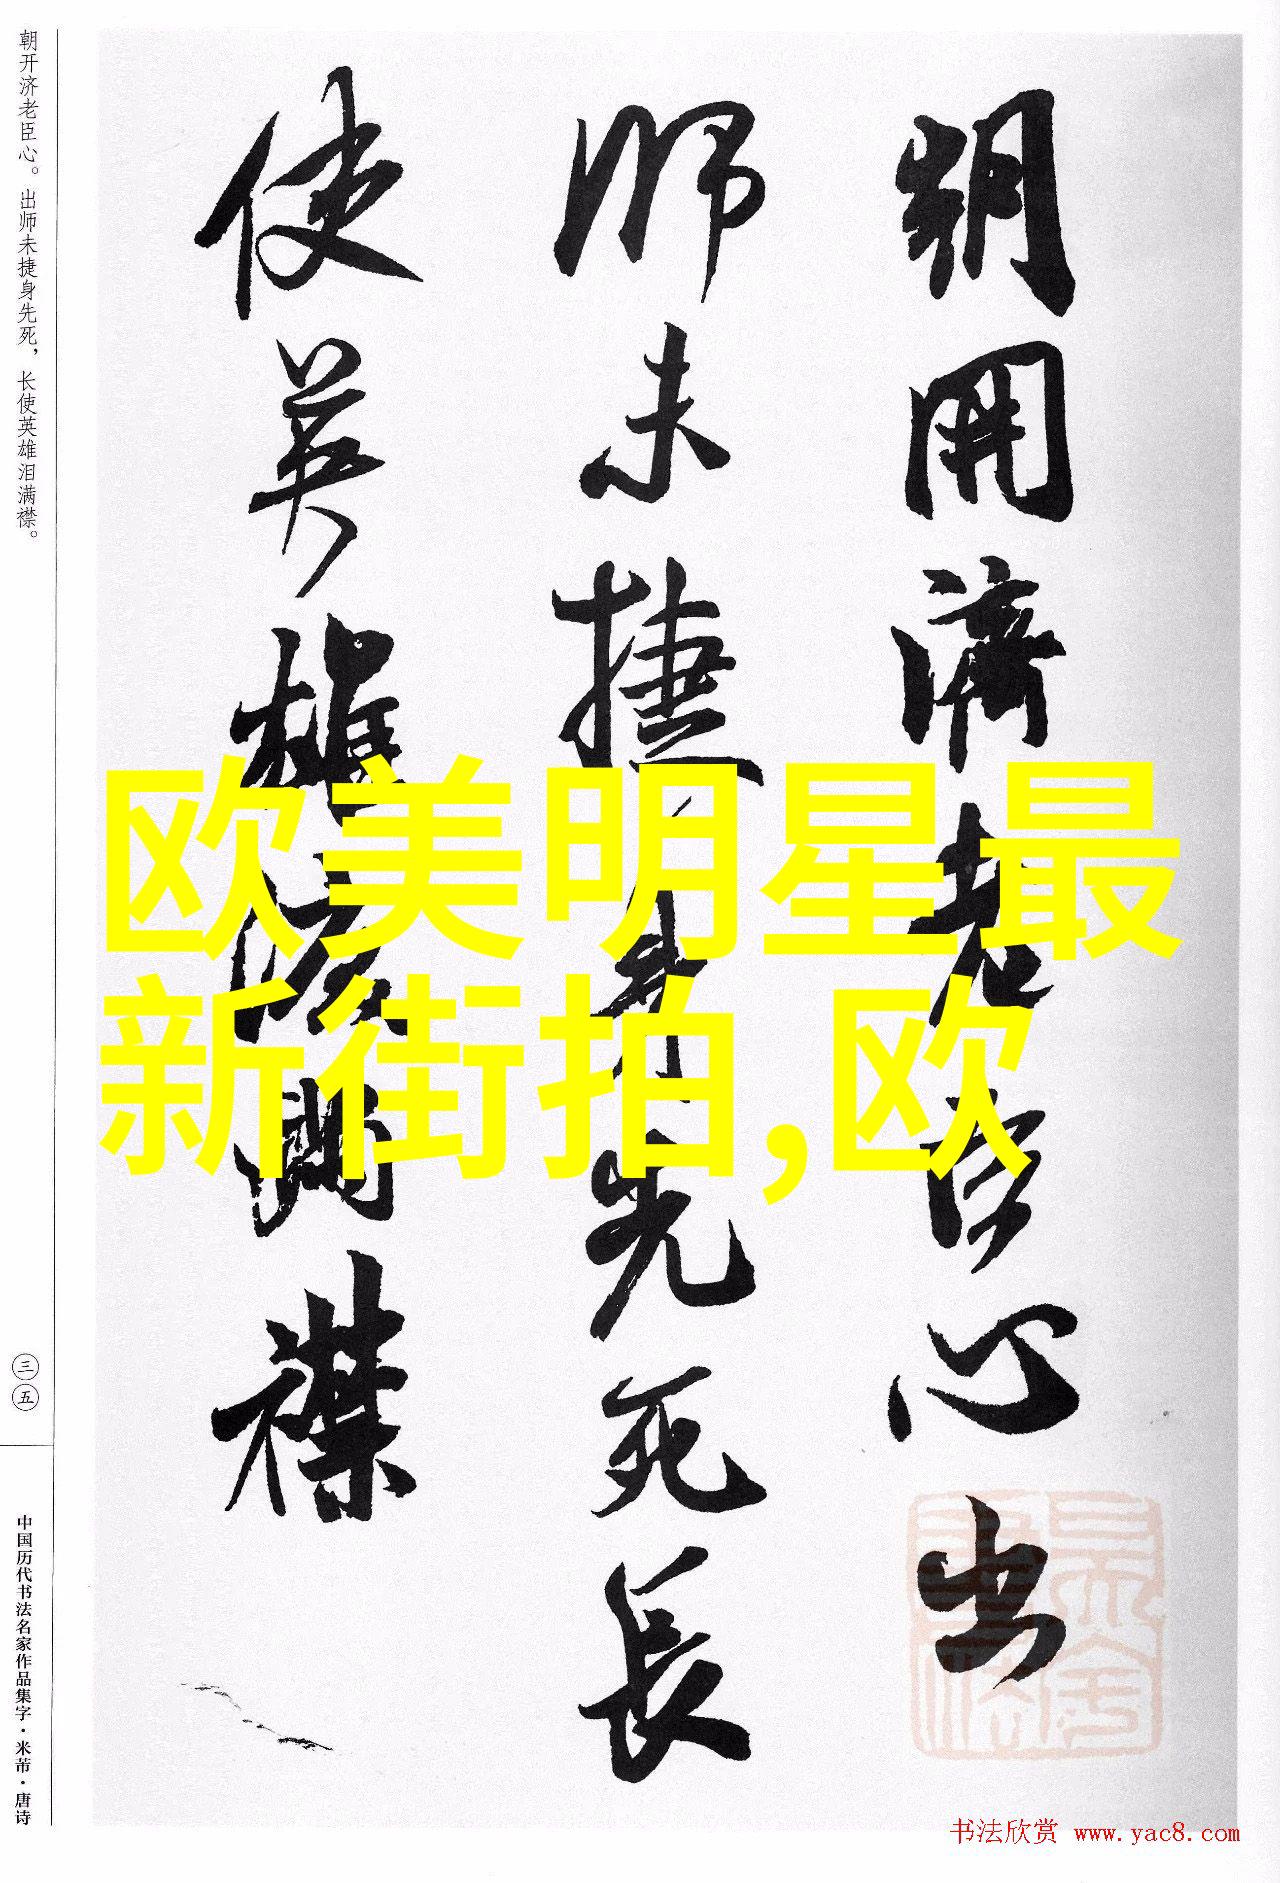 朝开济老臣心。出师未捷身先死，长使英雄泪满襟。
三五
中国历代书法名家作品集字·米芾·唐诗
朝開濟老臣心出
師未捷身先死長
使英雄淚滿襟
欧美明星最
新街拍,欧
书法欣赏 www.yac8.com